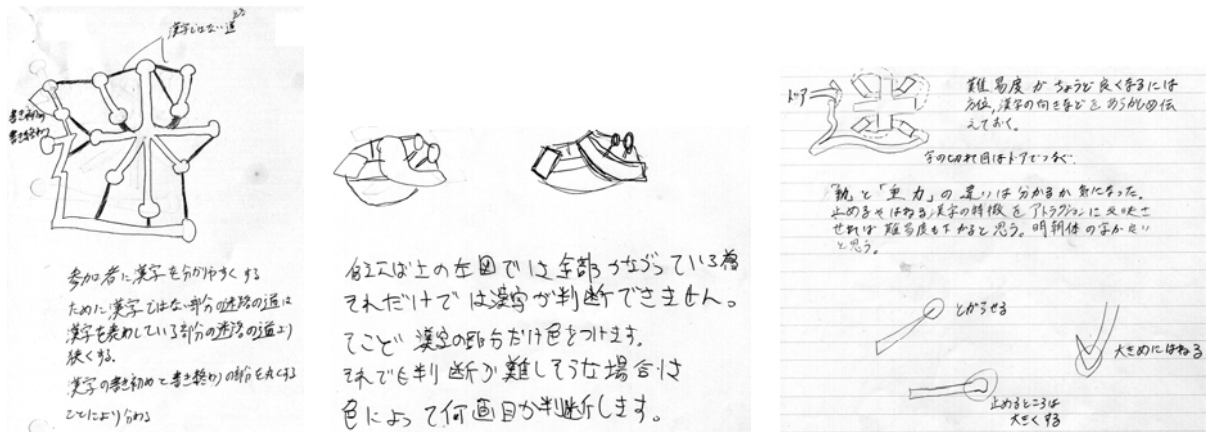 漢字ではない道
書き初め
書き終わり
参加者に漢字を分かりやすくする
ために漢字ではない部分の迷路の道は
漢字を表わしている部分の迷路の道より
狭くする。
漢字の書き初めと書き終わりの部分を丸くする
ことにより分かる
例えば上の左図では全部つながっている為
それだけでは漢字が判断できません。
てこど 漢字の部分だけ色をつけます。
それでも判断が難しそうな場合は
色によって何画目か判断します。
難易度がちょうど良くなるには
方位,漢字の向きなどをあらかじめ伝
えておく。
ドア
字の切れ目はドアでつなぐ.
「軌」と「重力」の違いは分かるか気になった。
止めるやはねる漢字の特徴をアトラクションに反映さ
せれば難易度も下がると思う。明朝体の字が良い
と思う。
とがらせる
大きめにはねる
止めるところは
大きくする